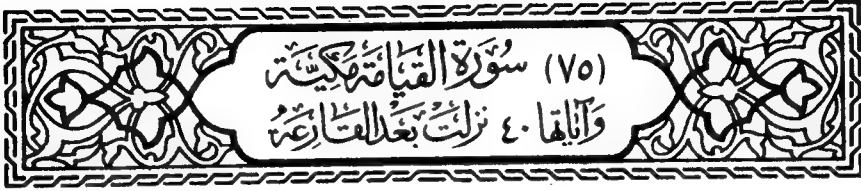 (٧٥) سُورَة القِيَامَة مَكِيَّة
وَآيَاتُهَا ٤٠ نَزلَتْ بَعْدَ القَارِعَة